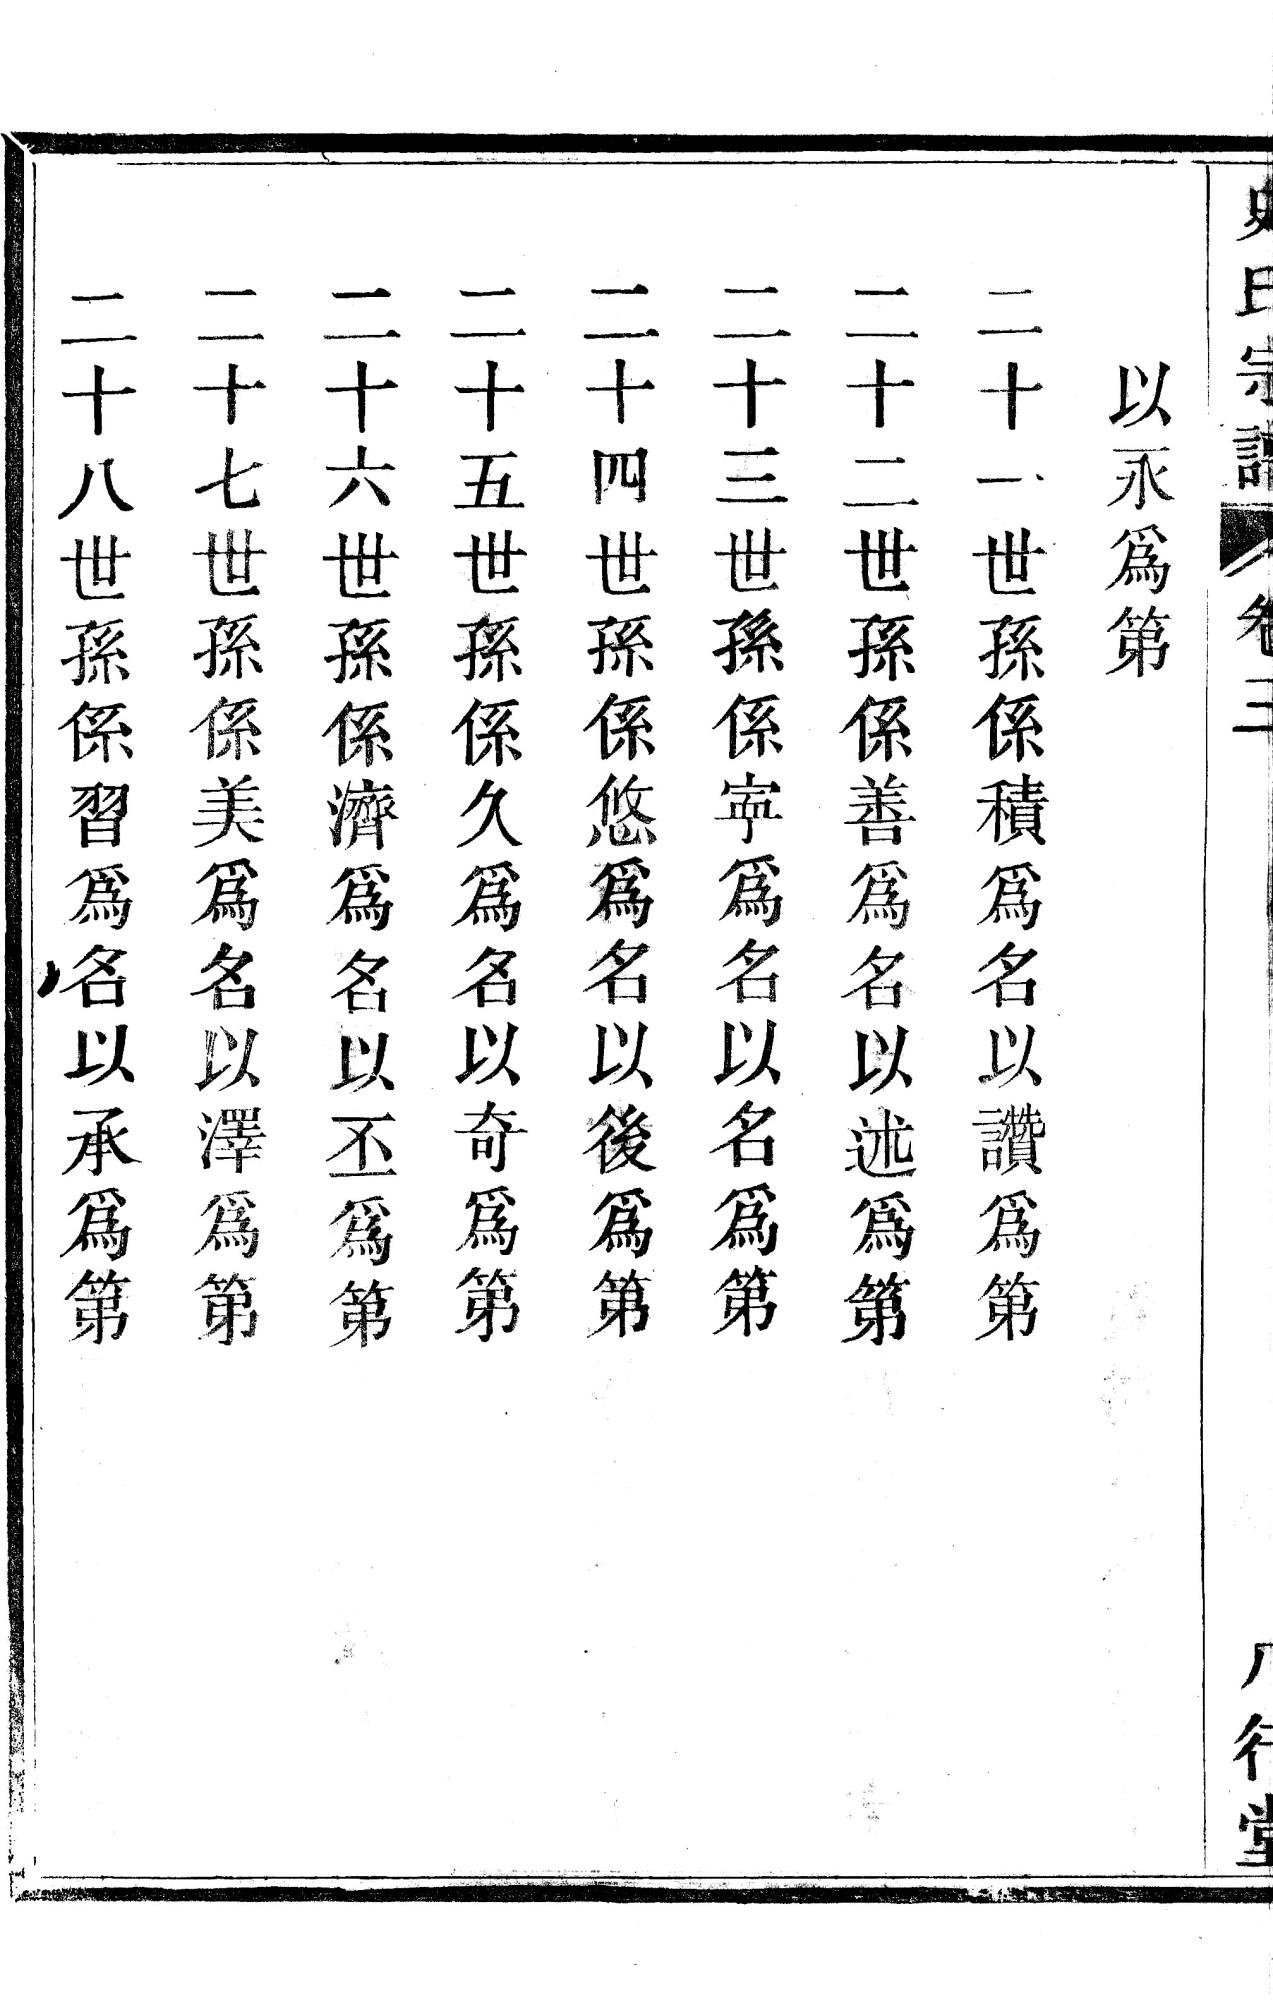 史氏宗譜
卷三
八行堂
以永爲第
二十一世孫係積爲名以讚爲第
二十二世孫係善爲名以述爲第
二十三世孫係寧爲名以名爲第
二十四世孫係悠爲名以後爲第
二十五世孫係久爲名以奇爲第
二十六世孫係濟爲名以丕爲第
二十七世孫係美爲名以澤爲第
二十八世孫係習爲名以承爲第